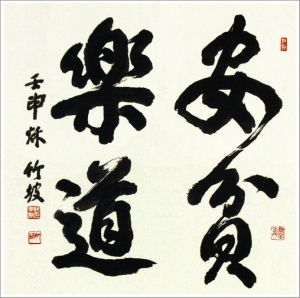 安貧
樂道
壬申秌 竹坡